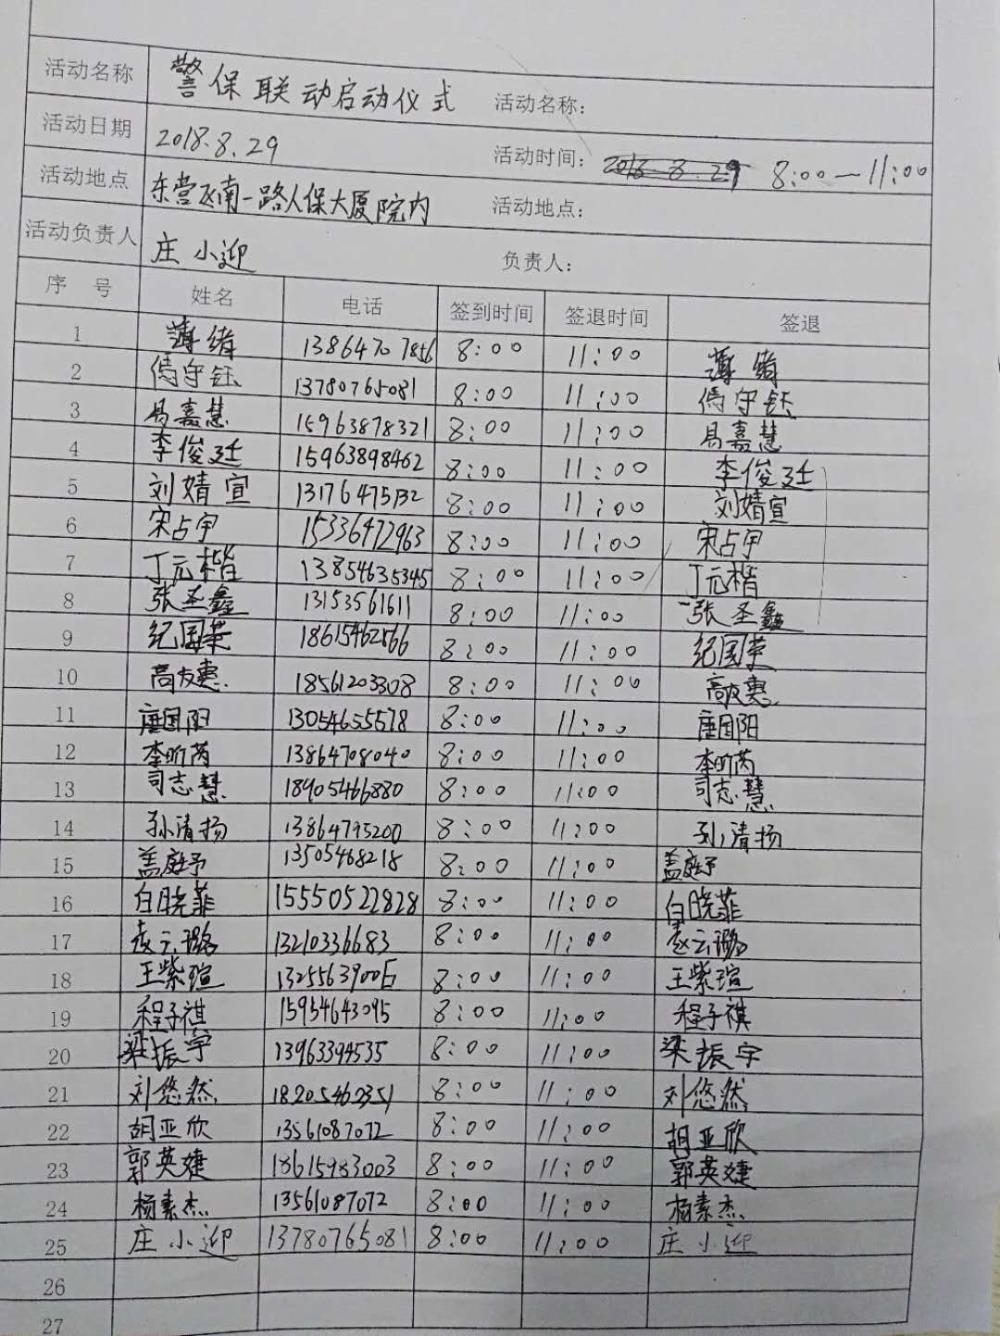 活动名称 警保联动启动仪式 活动名称：
活动日期 2018.8.29 活动时间： 2018.8.29 8:00—11:00
活动地点 东营区南一路人保大厦院内 活动地点：
活动负责人 庄小迎 负责人：
序号 姓名 电话 签到时间 签退时间 签退
1 绪 13864707856 8:00 11:00 绪
2 傅守钰 13780765081 8:00 11:00 傅守钰
3 易嘉慧 15963878321 8:00 11:00 易嘉慧
4 李俊廷 15963898462 8:00 11:00 李俊廷
5 刘婧宣 13176475132 8:00 11:00 刘婧宣
6 宋占宇 15336472963 8:00 11:00 宋占宇
7 丁元楷 13854635345 8:00 11:00 丁元楷
8 张圣鑫 13153561611 8:00 11:00 张圣鑫
9 纪国荣 18615462866 8:00 11:00 纪国荣
10 高友惠 18561203308 8:00 11:00 高友惠
11 唐国阳 13054655578 8:00 11:00 唐国阳
12 李昕芮 13864708040 8:00 11:00 李昕芮
13 司志慧 18905466880 8:00 11:00 司志慧
14 孙清扬 13864795200 8:00 11:00 孙清扬
15 盖庭予 13505468218 8:00 11:00 盖庭予
16 白晓菲 15550522828 8:00 11:00 白晓菲
17 袁云璐 13210336683 8:00 11:00 袁云璐
18 王紫瑄 8:00 11:00 王紫瑄
19 程子祺 15954643095 8:00 11:00 程子祺
20 梁振宇 13963394535 8:00 11:00 梁振宇
21 刘悠然 18205460351 8:00 11:00 刘悠然
22 胡亚欣 13561087072 8:00 11:00 胡亚欣
23 郭英婕 18615983003 8:00 11:00 郭英婕
24 杨素杰 13561087072 8:00 11:00 杨素杰
25 庄小迎 13780765081 8:00 11:00 庄小迎
26
27